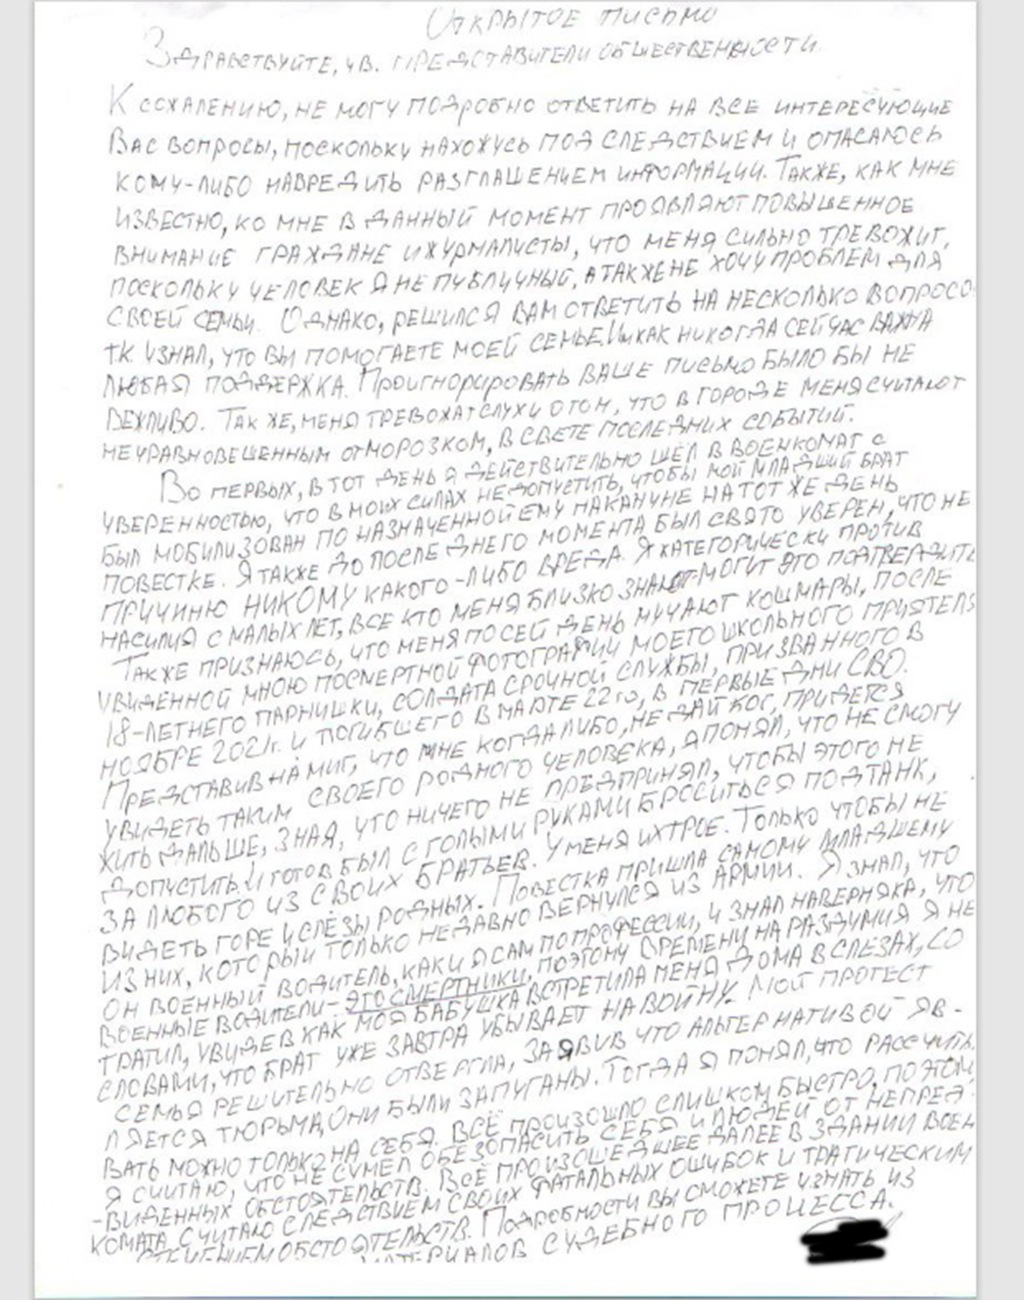 ОТКРЫТОЕ ПИСЬМО
ЗДРАВСТВУЙТЕ, УВ. ПРЕДСТАВИТЕЛИ ОБЩЕСТВЕННОСТИ.
К СОЖАЛЕНИЮ, НЕ МОГУ ПОДРОБНО ОТВЕТИТЬ НА ВСЕ ИНТЕРЕСУЮЩИЕ
ВАС ВОПРОСЫ, ПОСКОЛЬКУ НАХОЖУСЬ ПОД СЛЕДСТВИЕМ И ОПАСАЮСЬ
КОМУ-ЛИБО НАВРЕДИТЬ РАЗГЛАШЕНИЕМ ИНФОРМАЦИИ. ТАКЖЕ, КАК МНЕ
ИЗВЕСТНО, КО МНЕ В ДАННЫЙ МОМЕНТ ПРОЯВЛЯЮТ ПОВЫШЕННОЕ
ВНИМАНИЕ ГРАЖДАНЕ И ЖУРНАЛИСТЫ, ЧТО МЕНЯ СИЛЬНО ТРЕВОЖИТ,
ПОСКОЛЬКУ ЧЕЛОВЕК Я НЕ ПУБЛИЧНЫЙ, А ТАКЖЕ НЕ ХОЧУ ПРОБЛЕМ ДЛЯ
СВОЕЙ СЕМЬИ. ОДНАКО, РЕШИЛСЯ ВАМ ОТВЕТИТЬ НА НЕСКОЛЬКО ВОПРОСО
Т.К. УЗНАЛ, ЧТО ВЫ ПОМОГАЕТЕ МОЕЙ СЕМЬЕ. ИМ КАК НИКОГДА СЕЙЧАС ВАЖНА
ЛЮБАЯ ПОДДЕРЖКА. ПРОИГНОРИРОВАТЬ ВАШЕ ПИСЬМО БЫЛО БЫ НЕ
ВЕЖЛИВО. ТАК ЖЕ, МЕНЯ ТРЕВОЖАТ СЛУХИ О ТОМ, ЧТО В ГОРОДЕ МЕНЯ СЧИТАЮТ
НЕУРАВНОВЕШЕННЫМ ОТМОРОЗКОМ, В СВЕТЕ ПОСЛЕДНИХ СОБЫТИЙ.
ВО ПЕРВЫХ, В ТОТ ДЕНЬ Я ДЕЙСТВИТЕЛЬНО ШЁЛ В ВОЕНКОМАТ С
УВЕРЕННОСТЬЮ, ЧТО В МОИХ СИЛАХ НЕ ДОПУСТИТЬ, ЧТОБЫ МОЙ МЛАДШИЙ БРАТ
БЫЛ МОБИЛИЗОВАН ПО НАЗНАЧЕННОЙ ЕМУ НАКАНУНЕ НА ТОТ ЖЕ ДЕНЬ
ПОВЕСТКЕ. Я ТАКЖЕ ДО ПОСЛЕДНЕГО МОМЕНТА БЫЛ СВЯТО УВЕРЕН, ЧТО НЕ
ПРИЧИНЮ НИКОМУ КАКОГО-ЛИБО ВРЕДА. Я КАТЕГОРИЧЕСКИ ПРОТИВ
НАСИЛИЯ С МАЛЫХ ЛЕТ, ВСЕ КТО МЕНЯ БЛИЗКО ЗНАЮТ МОГУТ ЭТО ПОДТВЕРДИТЬ
ТАКЖЕ ПРИЗНАЮСЬ, ЧТО МЕНЯ ПО СЕЙ ДЕНЬ МУЧАЮТ КОШМАРЫ, ПОСЛЕ
УВИДЕННОЙ МНОЮ ПОСМЕРТНОЙ ФОТОГРАФИИ МОЕГО ШКОЛЬНОГО ПРИЯТЕЛЯ
18-ЛЕТНЕГО ПАРНИШКИ, СОЛДАТА СРОЧНОЙ СЛУЖБЫ, ПРИЗВАННОГО В
НОЯБРЕ 2021г. И ПОГИБШЕГО В МАРТЕ 22го, В ПЕРВЫЕ ДНИ СВО.
ПРЕДСТАВИВ НА МИГ, ЧТО МНЕ КОГДА ЛИБО, НЕ ДАЙ БОГ, ПРИДЕТСЯ
УВИДЕТЬ ТАКИМ СВОЕГО РОДНОГО ЧЕЛОВЕКА, Я ПОНЯЛ, ЧТО НЕ СМОГУ
ЖИТЬ ДАЛЬШЕ, ЗНАЯ, ЧТО НИЧЕГО НЕ ПРЕДПРИНЯЛ, ЧТОБЫ ЭТОГО НЕ
ДОПУСТИТЬ. И ГОТОВ БЫЛ С ГОЛЫМИ РУКАМИ БРОСИТЬСЯ ПОД ТАНК,
ЗА ЛЮБОГО ИЗ СВОИХ БРАТЬЕВ. У МЕНЯ ИХ ТРОЕ. ТОЛЬКО ЧТОБЫ НЕ
ВИДЕТЬ ГОРЕ И СЛЁЗЫ РОДНЫХ. ПОВЕСТКА ПРИШЛА САМОМУ МЛАДШЕМУ
ИЗ НИХ, КОТОРЫЙ ТОЛЬКО НЕДАВНО ВЕРНУЛСЯ ИЗ АРМИИ. Я ЗНАЛ, ЧТО
ОН ВОЕННЫЙ ВОДИТЕЛЬ, КАК И Я САМ ПО ПРОФЕССИИ, И ЗНАЛ НАВЕРНЯКА, ЧТО
ВОЕННЫЕ ВОДИТЕЛИ - ЭТО СМЕРТНИКИ, ПОЭТОМУ ВРЕМЕНИ НА РАЗДУМИЯ Я НЕ
ТРАТИЛ, УВИДЕВ КАК МОЯ БАБУШКА ВСТРЕТИЛА МЕНЯ ДОМА В СЛЕЗАХ, СО
СЛОВАМИ, ЧТО БРАТ УЖЕ ЗАВТРА УБЫВАЕТ НА ВОЙНУ. МОЙ ПРОТЕСТ
СЕМЬЯ РЕШИТЕЛЬНО ОТВЕРГЛА, ЗАЯВИВ ЧТО АЛЬТЕРНАТИВОЙ ЯВ-
ЛЯЕТСЯ ТЮРЬМА, ОНИ БЫЛИ ЗАПУГАНЫ. ТОГДА Я ПОНЯЛ, ЧТО РАССЧИТЫ
ВАТЬ МОЖНО ТОЛЬКО НА СЕБЯ. ВСЁ ПРОИЗОШЛО СЛИШКОМ БЫСТРО, ПОЭТОМУ
Я СЧИТАЮ, ЧТО НЕ СУМЕЛ ОБЕЗОПАСИТЬ СЕБЯ И ЛЮДЕЙ ОТ НЕПРЕД-
-ВИДЕННЫХ ОБСТОЯТЕЛЬСТВ. ВСЁ ПРОИЗОШЕДШЕЕ ДАЛЕЕ В ЗДАНИИ ВОЕН
КОМАТА СЧИТАЮ СЛЕДСТВИЕМ СВОИХ ФАТАЛЬНЫХ ОШИБОК И ТРАГИЧЕСКИМ
СТЕЧЕНИЕМ ОБСТОЯТЕЛЬСТВ. ПОДРОБНОСТИ ВЫ СМОЖЕТЕ УЗНАТЬ ИЗ
МАТЕРИАЛОВ СУДЕБНОГО ПРОЦЕССА.